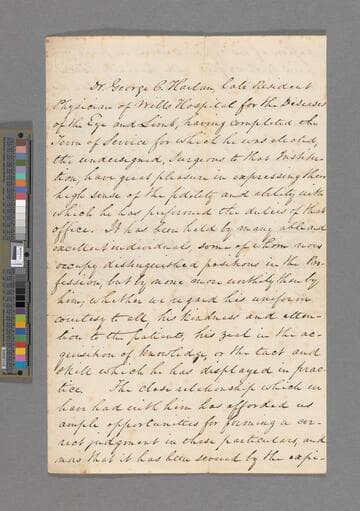 Dr. George C. Harlan, late Resident
Physician of Wills Hospital for the Diseases
of the Eye and Limb, having completed the
Term of Service for which he was elected,
the undersigned, Surgeons to that Institu-
tion, have great pleasure in expressing their
high sense of the fidelity and ability with
which he has performed the duties of that
office. It has been held by many able and
excellent individuals, some of whom now
occupy distinguished positions in the Pro-
fession, but by none more worthily than by
him, whether we regard his uniform
courtesy to all, his kindness and atten-
tion to the patients, his zeal in the ac-
quisition of knowledge, or the tact and
skill which he has displayed in prac-
tice. The close relationship which we
have had with him has afforded us
ample opportunities for forming a cor-
rect judgment in these particulars, and
now that it has been severed by the expi-